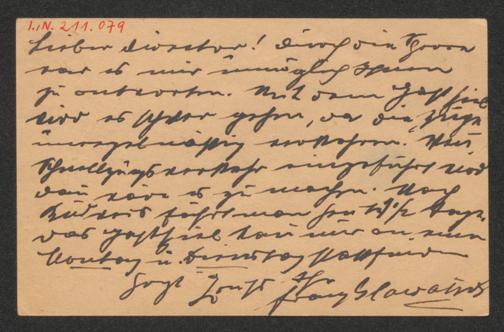 I.N. 211.079
Lieber Director! Durch die
war es mir unmöglich Ihnen
zu antworten. Mit dem Gastspiel
wird es schwer gehen, da die Züge
unregelmäßig verkehren. Wenn
Schnellzugsverkehr eingeführt wird
dann wäre es zu machen. Nach
fährt man 1/2 Tage.
Das Gastspiel kann nur an einem
Montag u. Dienstag stattfinden
Ihr
Franz Glawatsch